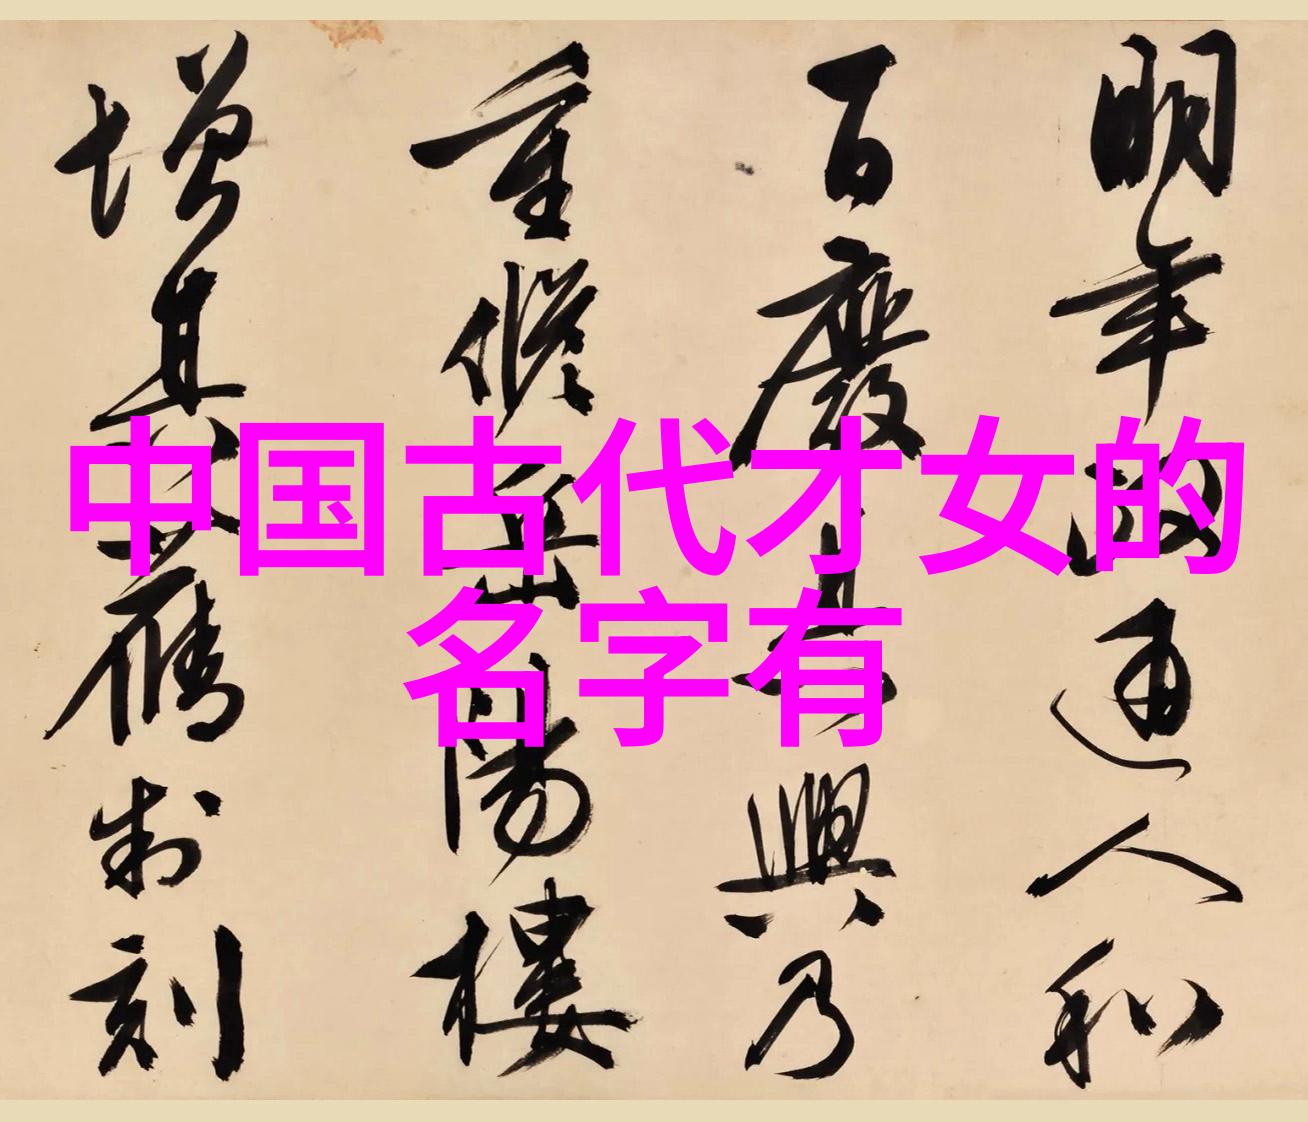 明年政通人和
百废具兴乃
重修岳阳楼
增其旧制刻
中国古代才女的
名字有